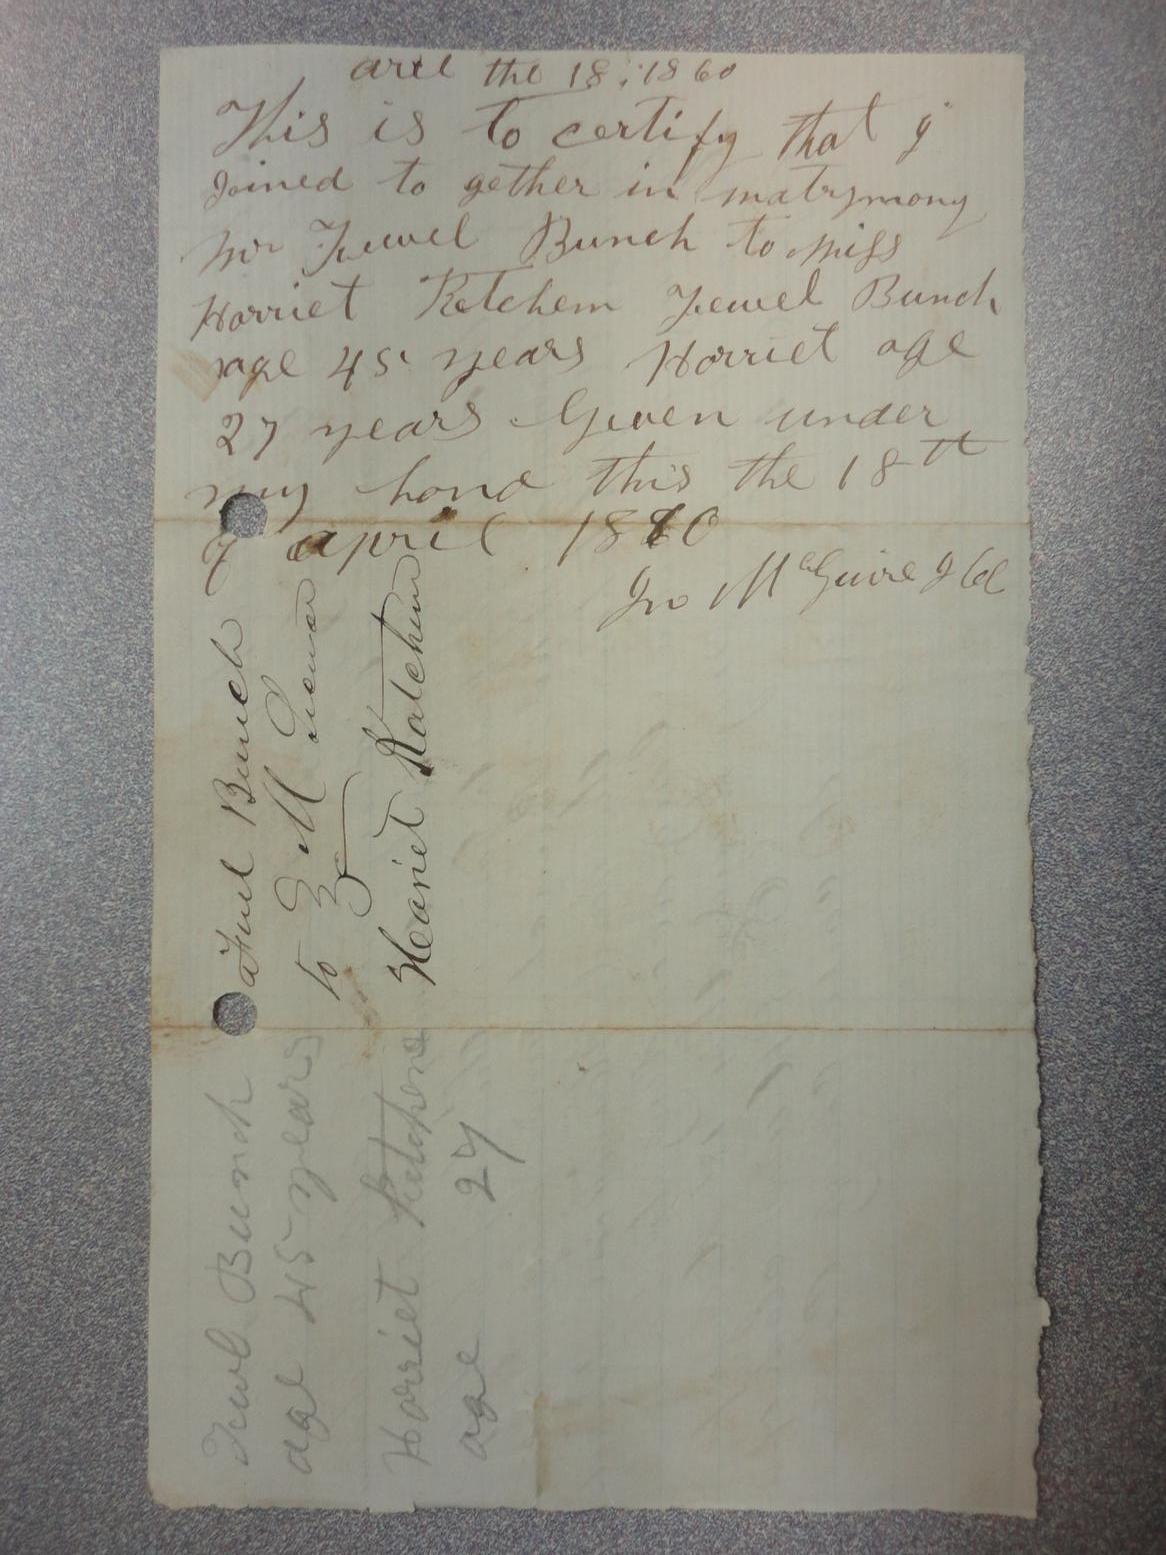 aril the 18, 1860
This is to certify that J
Joined to gether in matrymony
Mr Fewel Bunch to Miss
Harriet Ketchem Fewel Bunch
age 45 years Harriet age
27 years Given under
my hand this the 18th
of april 1860
Jno McGuire
Bunch
to
Hariet Katchum
Fewel Bunch
age 45 years
Harriet Ketchem
age 27